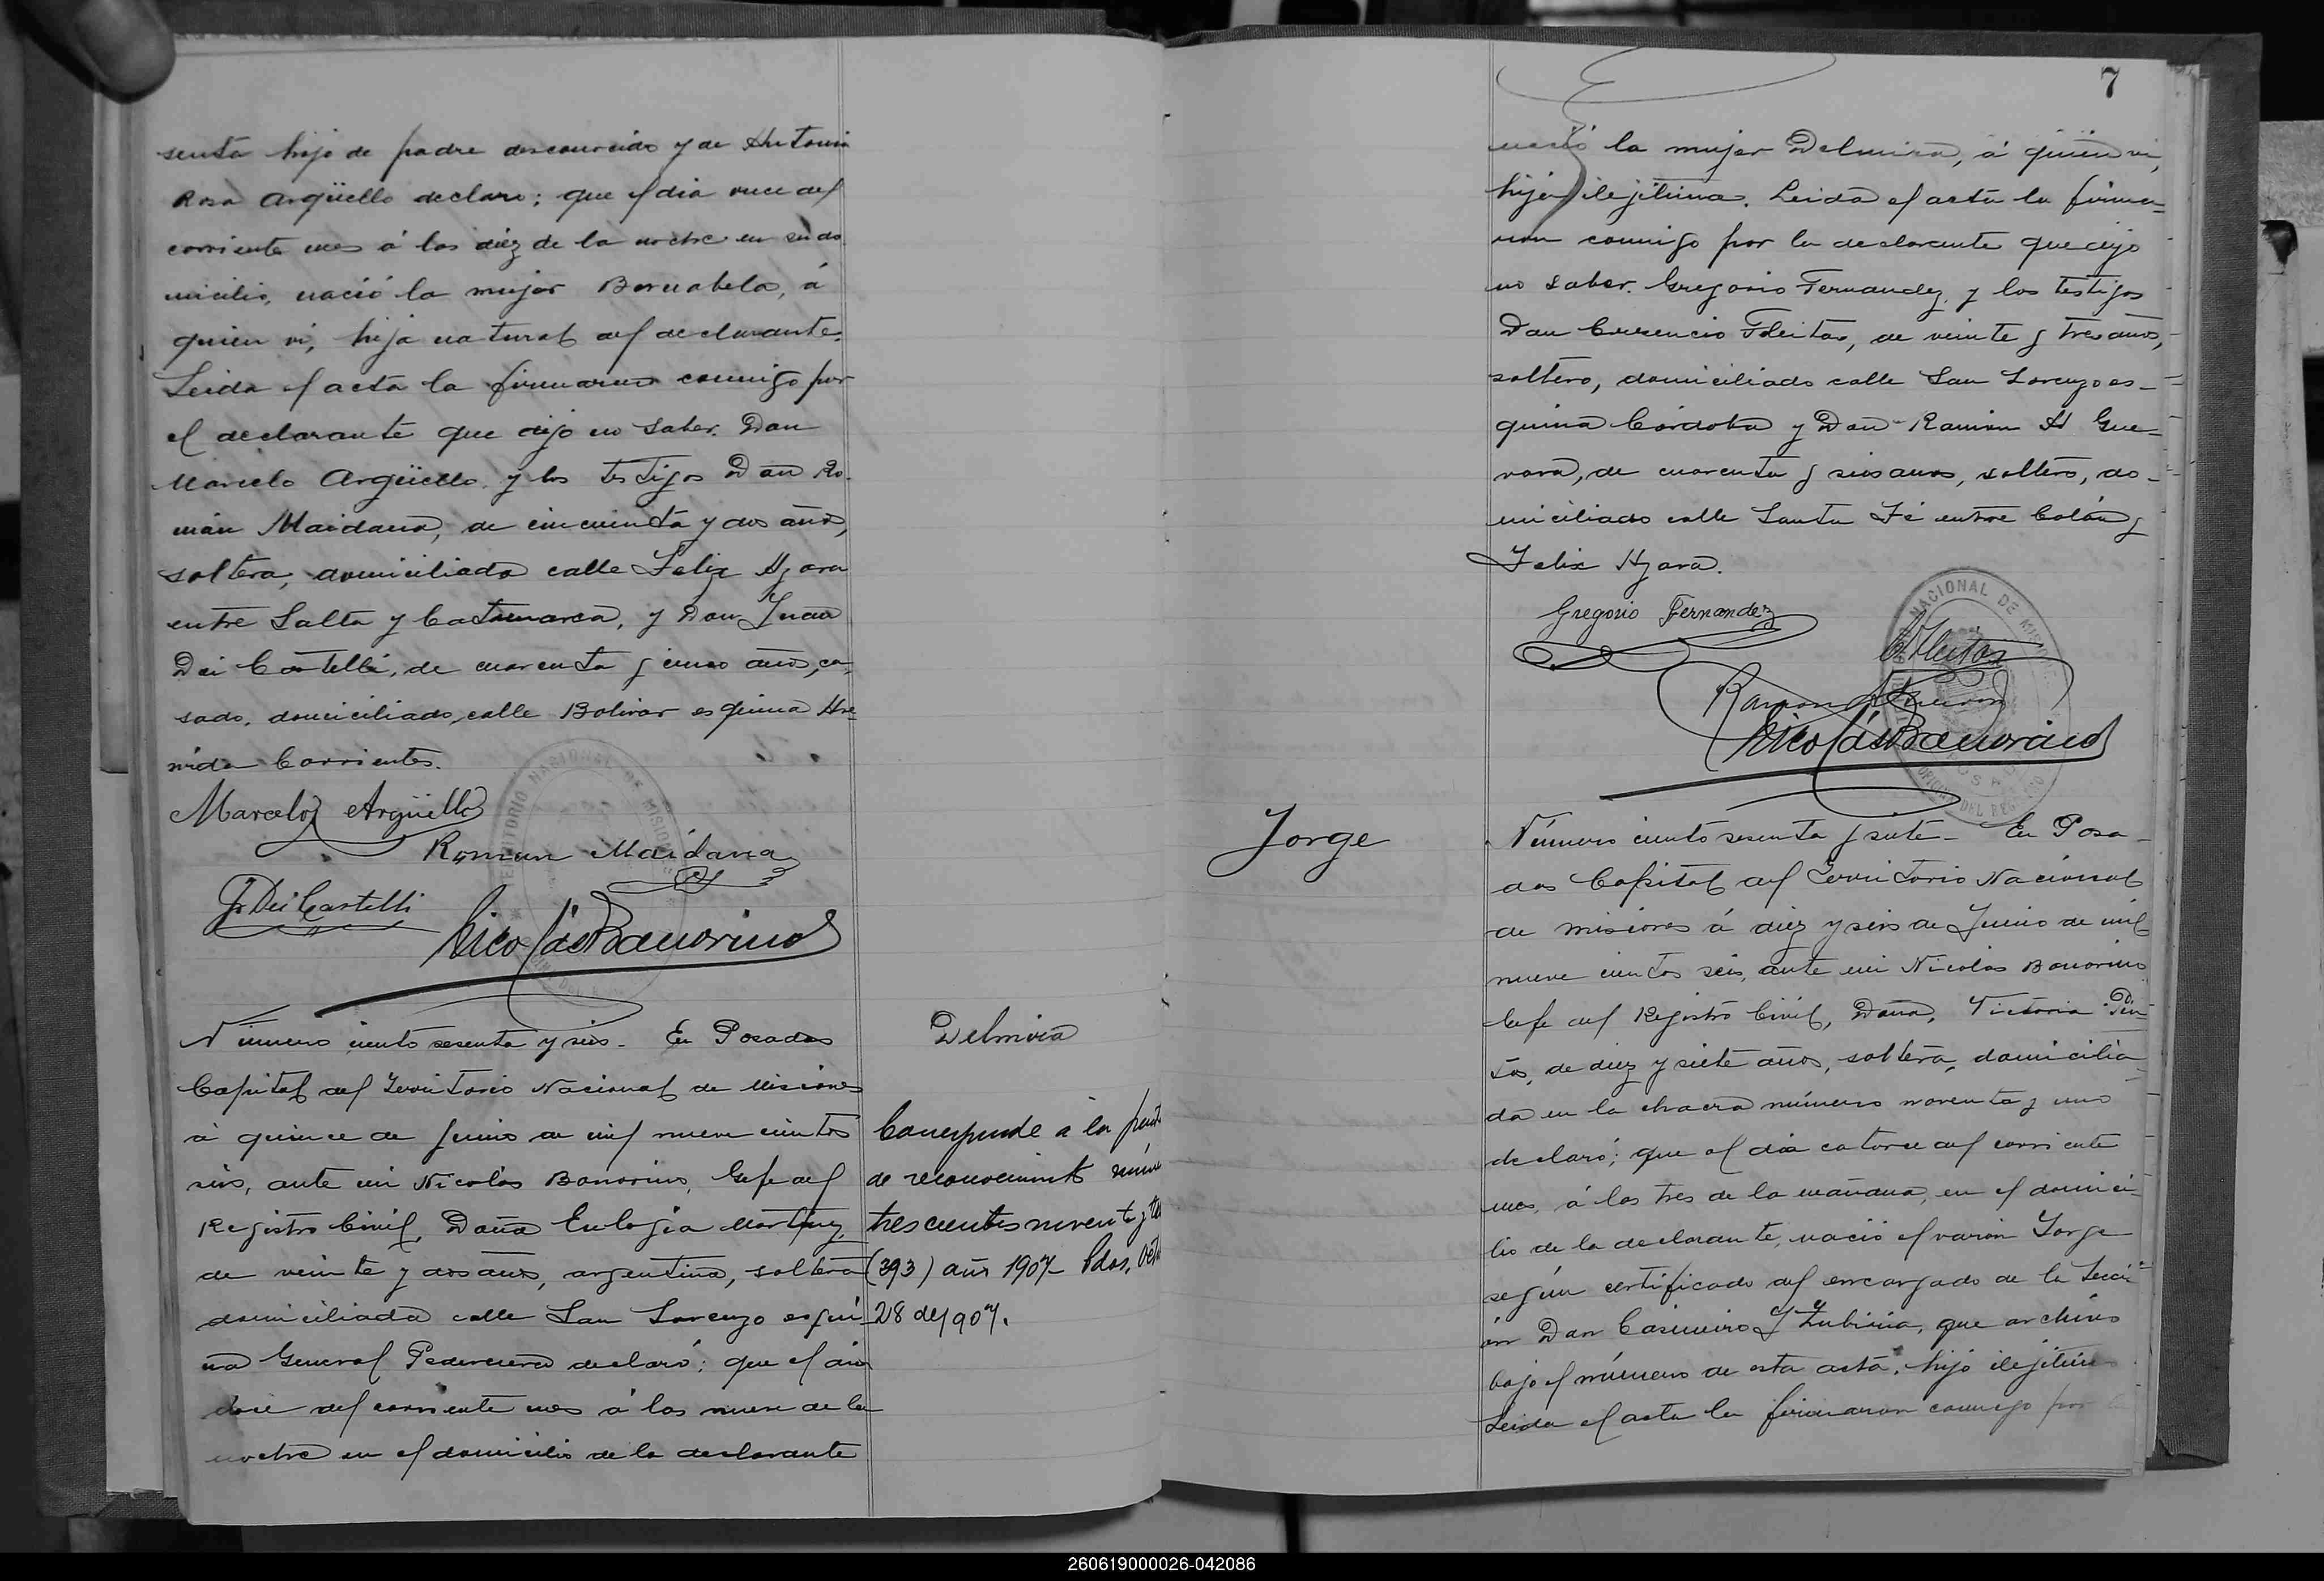 senta hijo de padre desconocido y de Antonia
Rosa Argüello declaró; que el dia once del
corriente mes á las diez de la noche en su do
micilio, nació la mujer Bernabela, á
quien vi, hija natural del declarante.
Leida el acta la firmaron conmigo por
el declarante que dijo no saber. Don
Marcelo Argüello y los testigos Don Ro-
mán Maidana, de cincuenta y dos años,
soltero, domiciliado calle Felix Azara
entre Salta y Catamarca, y Don Juan
Dei Castelli, de cuarenta y cinco años, ca-
sado, domiciliado calle Bolivar esquina Ave
nida Corrientes.
Marcelo Argüello
Roman Maidana
J. Dei Castelli
Nicolás Bonorino
TERRITORIO NACIONAL DE MISIONES
Número ciento sesenta y seis. En Posadas
Capital del Territorio Nacional de Misiones
á quince de Junio de mil nueve cientos
seis, ante mi Nicolás Bonorino, Gefe del
Registro Civil, Doña Eulogia Martinez,
de veinte y dos años, argentina, soltera
domiciliada calle San Lorenzo esqui-
na General Pedernera declaró; que el dia
doce del corriente mes á las nueve de la
noche en el domicilio de la declarante
Delmira
Corresponde á la
de reconocimiento
trescientos noventa y
(393) año 1907 - Pdas,
28 de 1907.
7
nació la mujer Delmira, á quien vi,
hija ilejitima. Leida el acta la firma=
ron conmigo por la declarante que dijo
no saber. Gregorio Fernandez, y los testigos
Don Cresencio Fleitas, de veinte y tres años,
soltero, domiciliado calle San Lorenzo es-
quina Córdoba y Don Ramón A Gue-
vara, de cuarenta y seis años, soltero, do-
miciliado calle Santa Fé entre Colón y
Felix Azara.
Gregorio Fernandez
C. Fleitas
Ramon A Guevara
Nicolás Bonorino
NACIONAL DE
OFICINA DEL REGISTRO
POSADAS
Jorge
Número ciento sesenta y siete - En Posa-
das Capital del Territorio Nacional
de Misiones á diez y seis de Junio de mil
nueve cientos seis, ante mi Nicolás Bonorino
Gefe del Registro Civil, Doña, Victoria Pin
tos, de diez y siete años, soltera, domicilia
da en la chacra número noventa y uno
declaró; que el dia catorce del corriente
mes, á las tres de la mañana, en el domici-
lio de la declarante, nació el varón Jorge
según certificado del encargado de la Secci
ón Don Casimiro Y Zubiria, que archivo
bajo el número de esta acta, hijo ilejitimo
Leida el acta la firmaron conmigo por
260619000026-042086